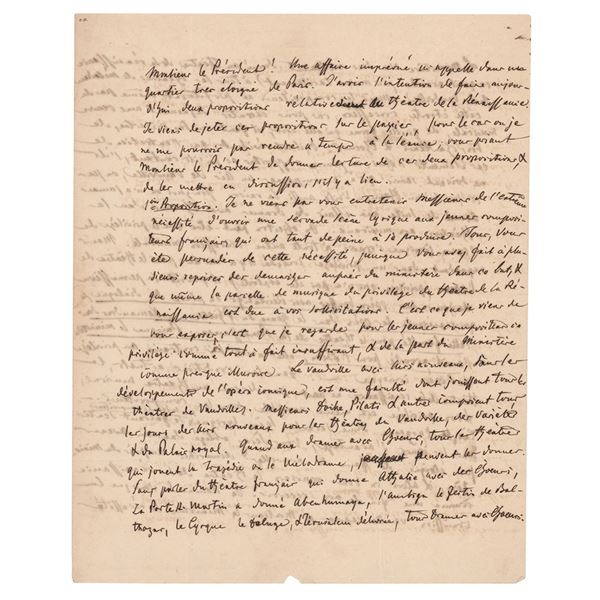 Monsieur le Président! Une affaire imprévue m'appelle dans un
quartier très éloigné de Paris. J'avais l'intention de faire aujour-
d'hui deux propositions relativement au théâtre de la Renaissance.
Je viens de jeter ces propositions sur le papier, pour le cas où je
ne me pourrois pas rendre à temps à la séance; vous priant
Monsieur le Président de donner lecture de ces deux propositions, &
de les mettre en discussion, s'il y a lieu.
1ère Proposition. Je ne viens pas vous entretenir messieurs de l'extrême
nécessité d'ouvrir une seconde scène lyrique aux jeunes composi-
teurs français qui ont tant de peine à se produire. Tous, vous
êtes persuadés de cette nécessité, puisque vous avez fait à plu-
sieurs reprises des démarches auprès du ministère dans ce but, &
que même la parcelle de musique du privilège du théâtre de la Re-
naissance est due à vos sollicitations. C'est ce que je viens de
vous exposer, c'est que je regarde pour les jeunes compositeurs ce
privilège comme tout à fait insuffisant, & de la part du Ministère
comme presque illusoire. Le vaudville avec airs nouveaux, sans les
développements de l'opéra comique, est une faculté dont jouissent tous les
théâtres de Vaudvilles. Messieurs Doche, Pilati & autres composent tous
les jours des airs nouveaux pour les théâtres du Vaudville, des Variétés
& du Palais royal. Quand aux drames avec Choeurs, tous les théâtres
qui jouent la Tragédie ou le Mélodrame, peuvent les donner.
Sans parler du théâtre français qui donna Athalie avec des Choeurs,
La Porte St. Martin a donné Abenhumaya, l'ambigu le festin de Bal-
thazar, le Cyrque le Déluge, & Jérusalem délivrée, tous Drames avec Choeurs.